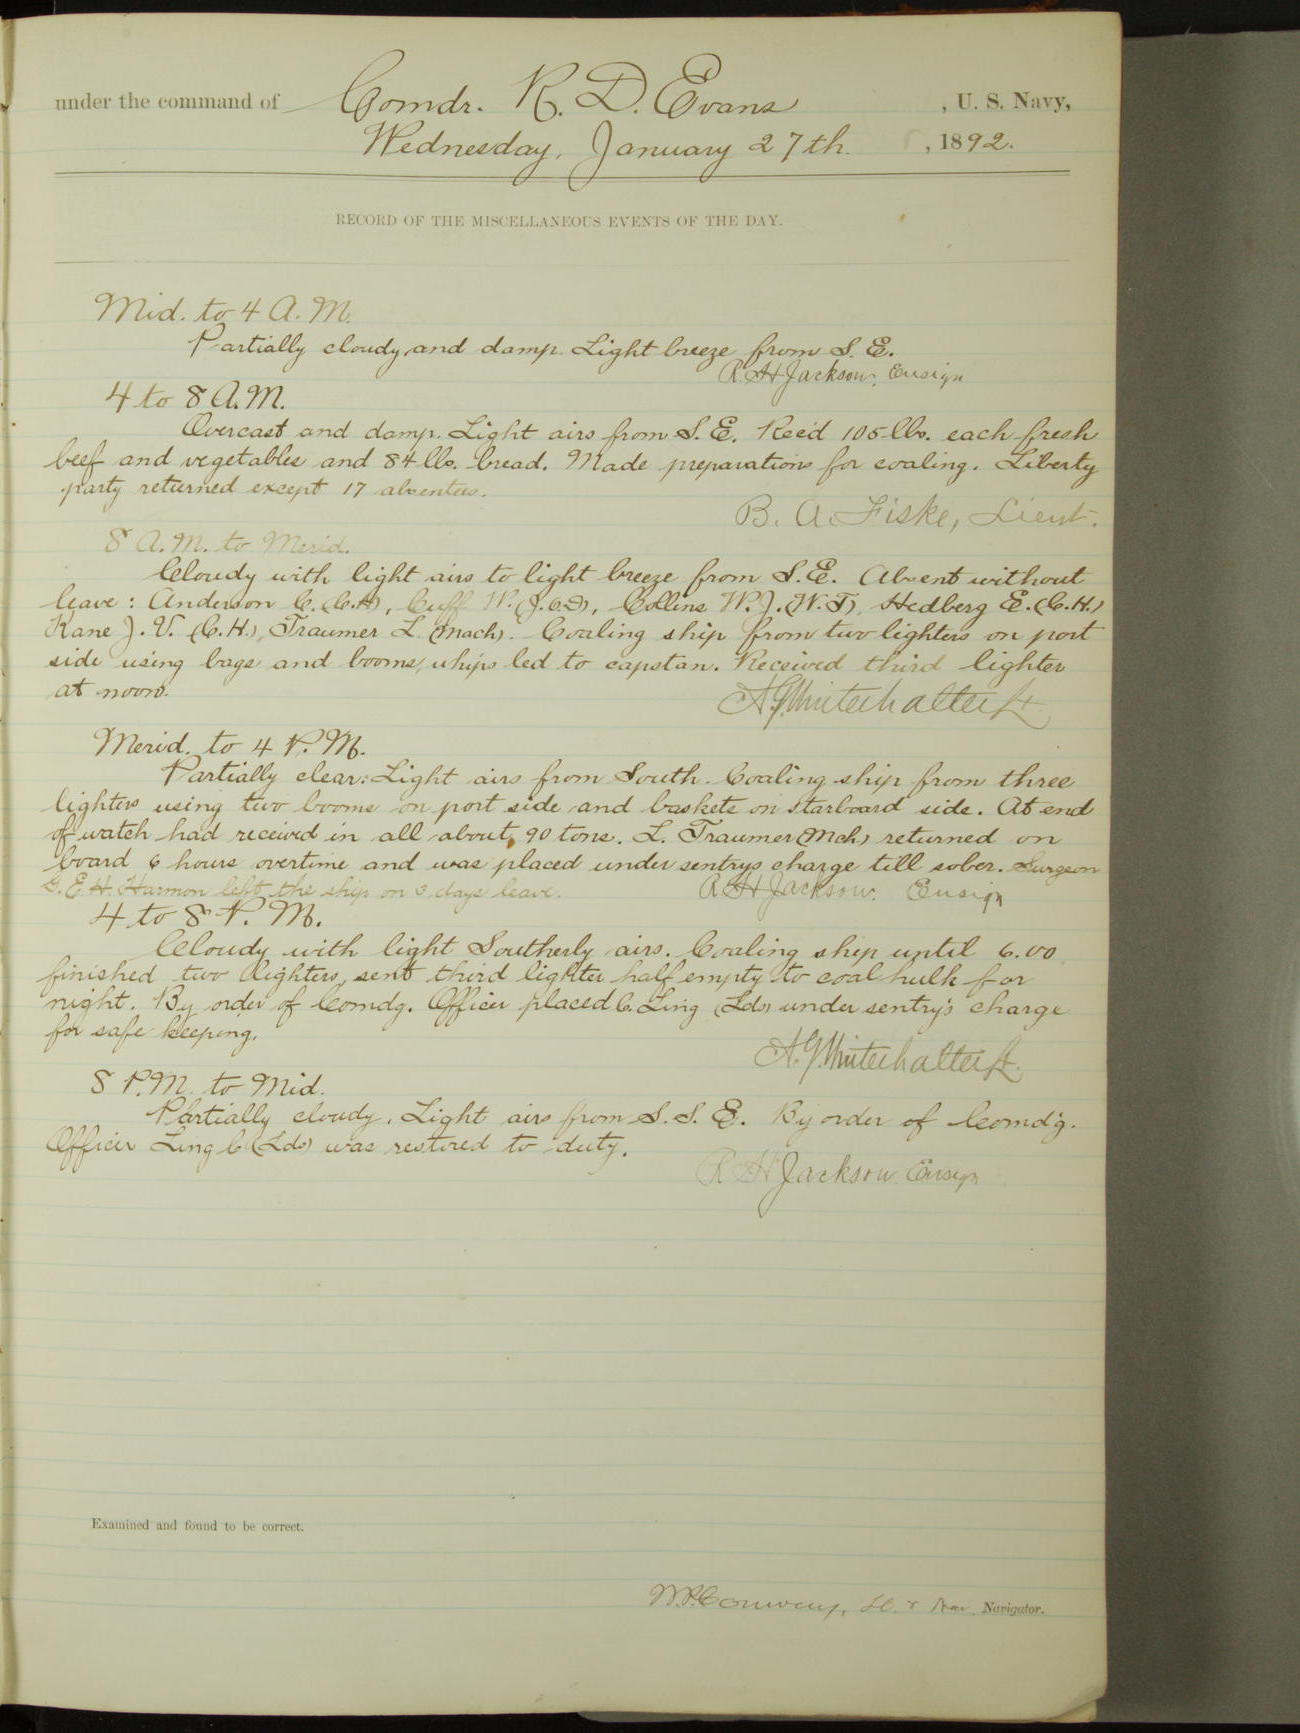 under the command of Comdr. R. D. Evans, U. S. Navy,
Wednesday, January 27th., 1892.
RECORD OF THE MISCELLANEOUS EVENTS OF THE DAY.
Mid. to 4 A. M.
Partially cloudy and damp. Light breeze from S. E.
R. H Jackson, Ensign
4 to 8 A. M.
Overcast and damp. Light airs from S. E. Rec'd 105 lbs. each fresh
beef and vegetables and 84 lbs. bread. Made preparations for coaling. Liberty
party returned except 17 absentees.
B. A. Fiske, Lieut.
8 A. M. to Merid.
Cloudy with light airs to light breeze from S. E. Absent without
leave: Anderson C. (C.H), Cuff W. , Collins W. J. (W. T), Hedberg E. (C. H.)
Kane J. V. (C. H.), Traumer L. (Mach). Coaling ship from two lighters on port
side using bags and booms, whips led to capstan. Received third lighter
at noon.
A. G. Winterhalter Lt.
Merid. to 4 P. M.
Partially clear: Light airs from South. Coaling ship from three
lighters using two booms on port side and baskets on starboard side. At end
of watch had received in all about 90 tons. L. Traumer (Mch) returned on
board 6 hours overtime and was placed under sentrys charge till sober. Surgeon
G. E. H. Harmon left the ship on 3 days leave.
R. H Jackson. Ensign
4 to 8 P. M.
Cloudy with light Southerly airs. Coaling ship until 6.00
finished two lighters, sent third lighter half empty to coal hulk for
night. By order of Comdg. Officer placed C. Ling (Lds) under sentry's charge
for safe keeping.
A. G. Winterhalter Lt.
8 P. M. to Mid.
Partially cloudy. Light airs from S. S. E. By order of Comd'g.
Officer Ling C (Lds) was restored to duty.
R. H Jackson. Ensign
Examined and found to be correct.
W. P. Conway, Lt. & Nav. Navigator.